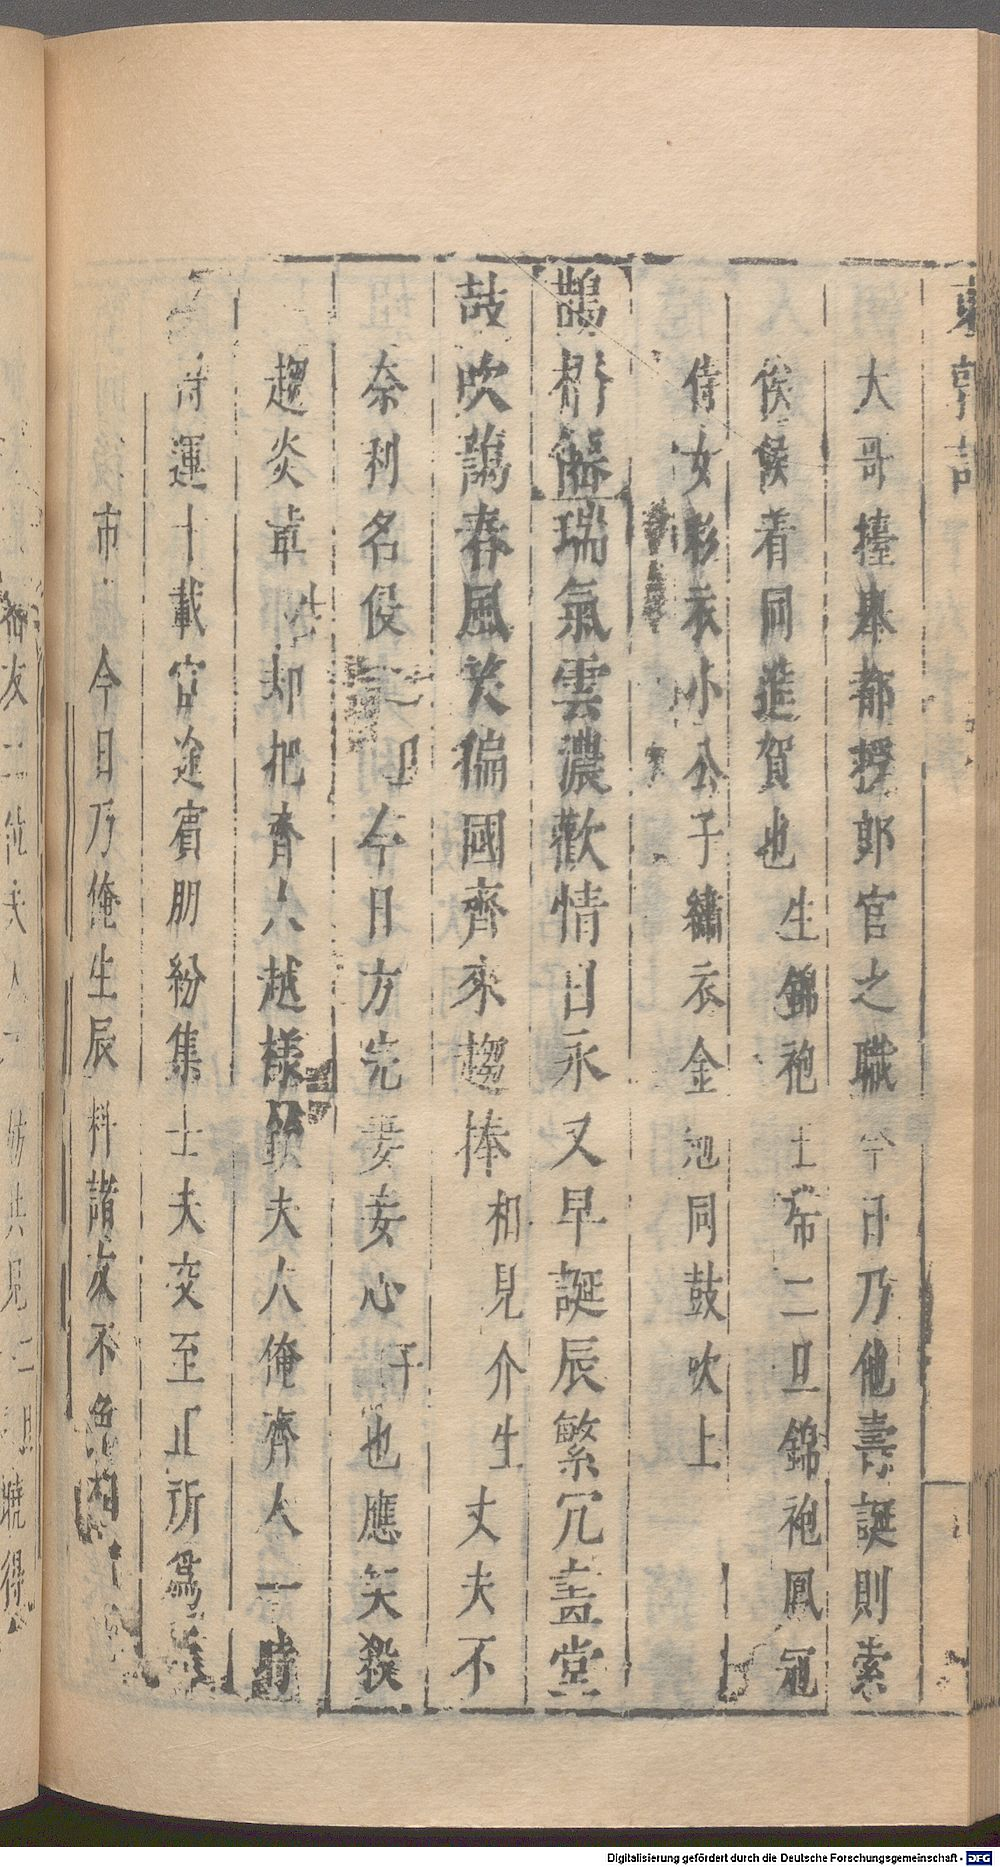 東郭記
大哥擡舉都授郎官之職今日乃他壽誕則索
俟候着同進賀也生錦袍士布二旦錦袍鳳冠
侍女彩衣小公子繡衣金冠同鼓吹上
鵲橋仙瑞氣雲濃歡情日永又早誕辰繁冗畫堂
鼓吹藹春風笑偏國齊來趨捧相見介生丈夫不
奈利名役旦今日方完妻妾心也應笑殺
趨炎却把齊人越樣欽夫人俺齊人一時
時運十載官途賓朋紛集士夫交至正所爲
市今日乃俺生辰料諸友不免
友二位夫人共見二旦曉得
Digitalisierung gefördert durch die Deutsche Forschungsgemeinschaft - DFG